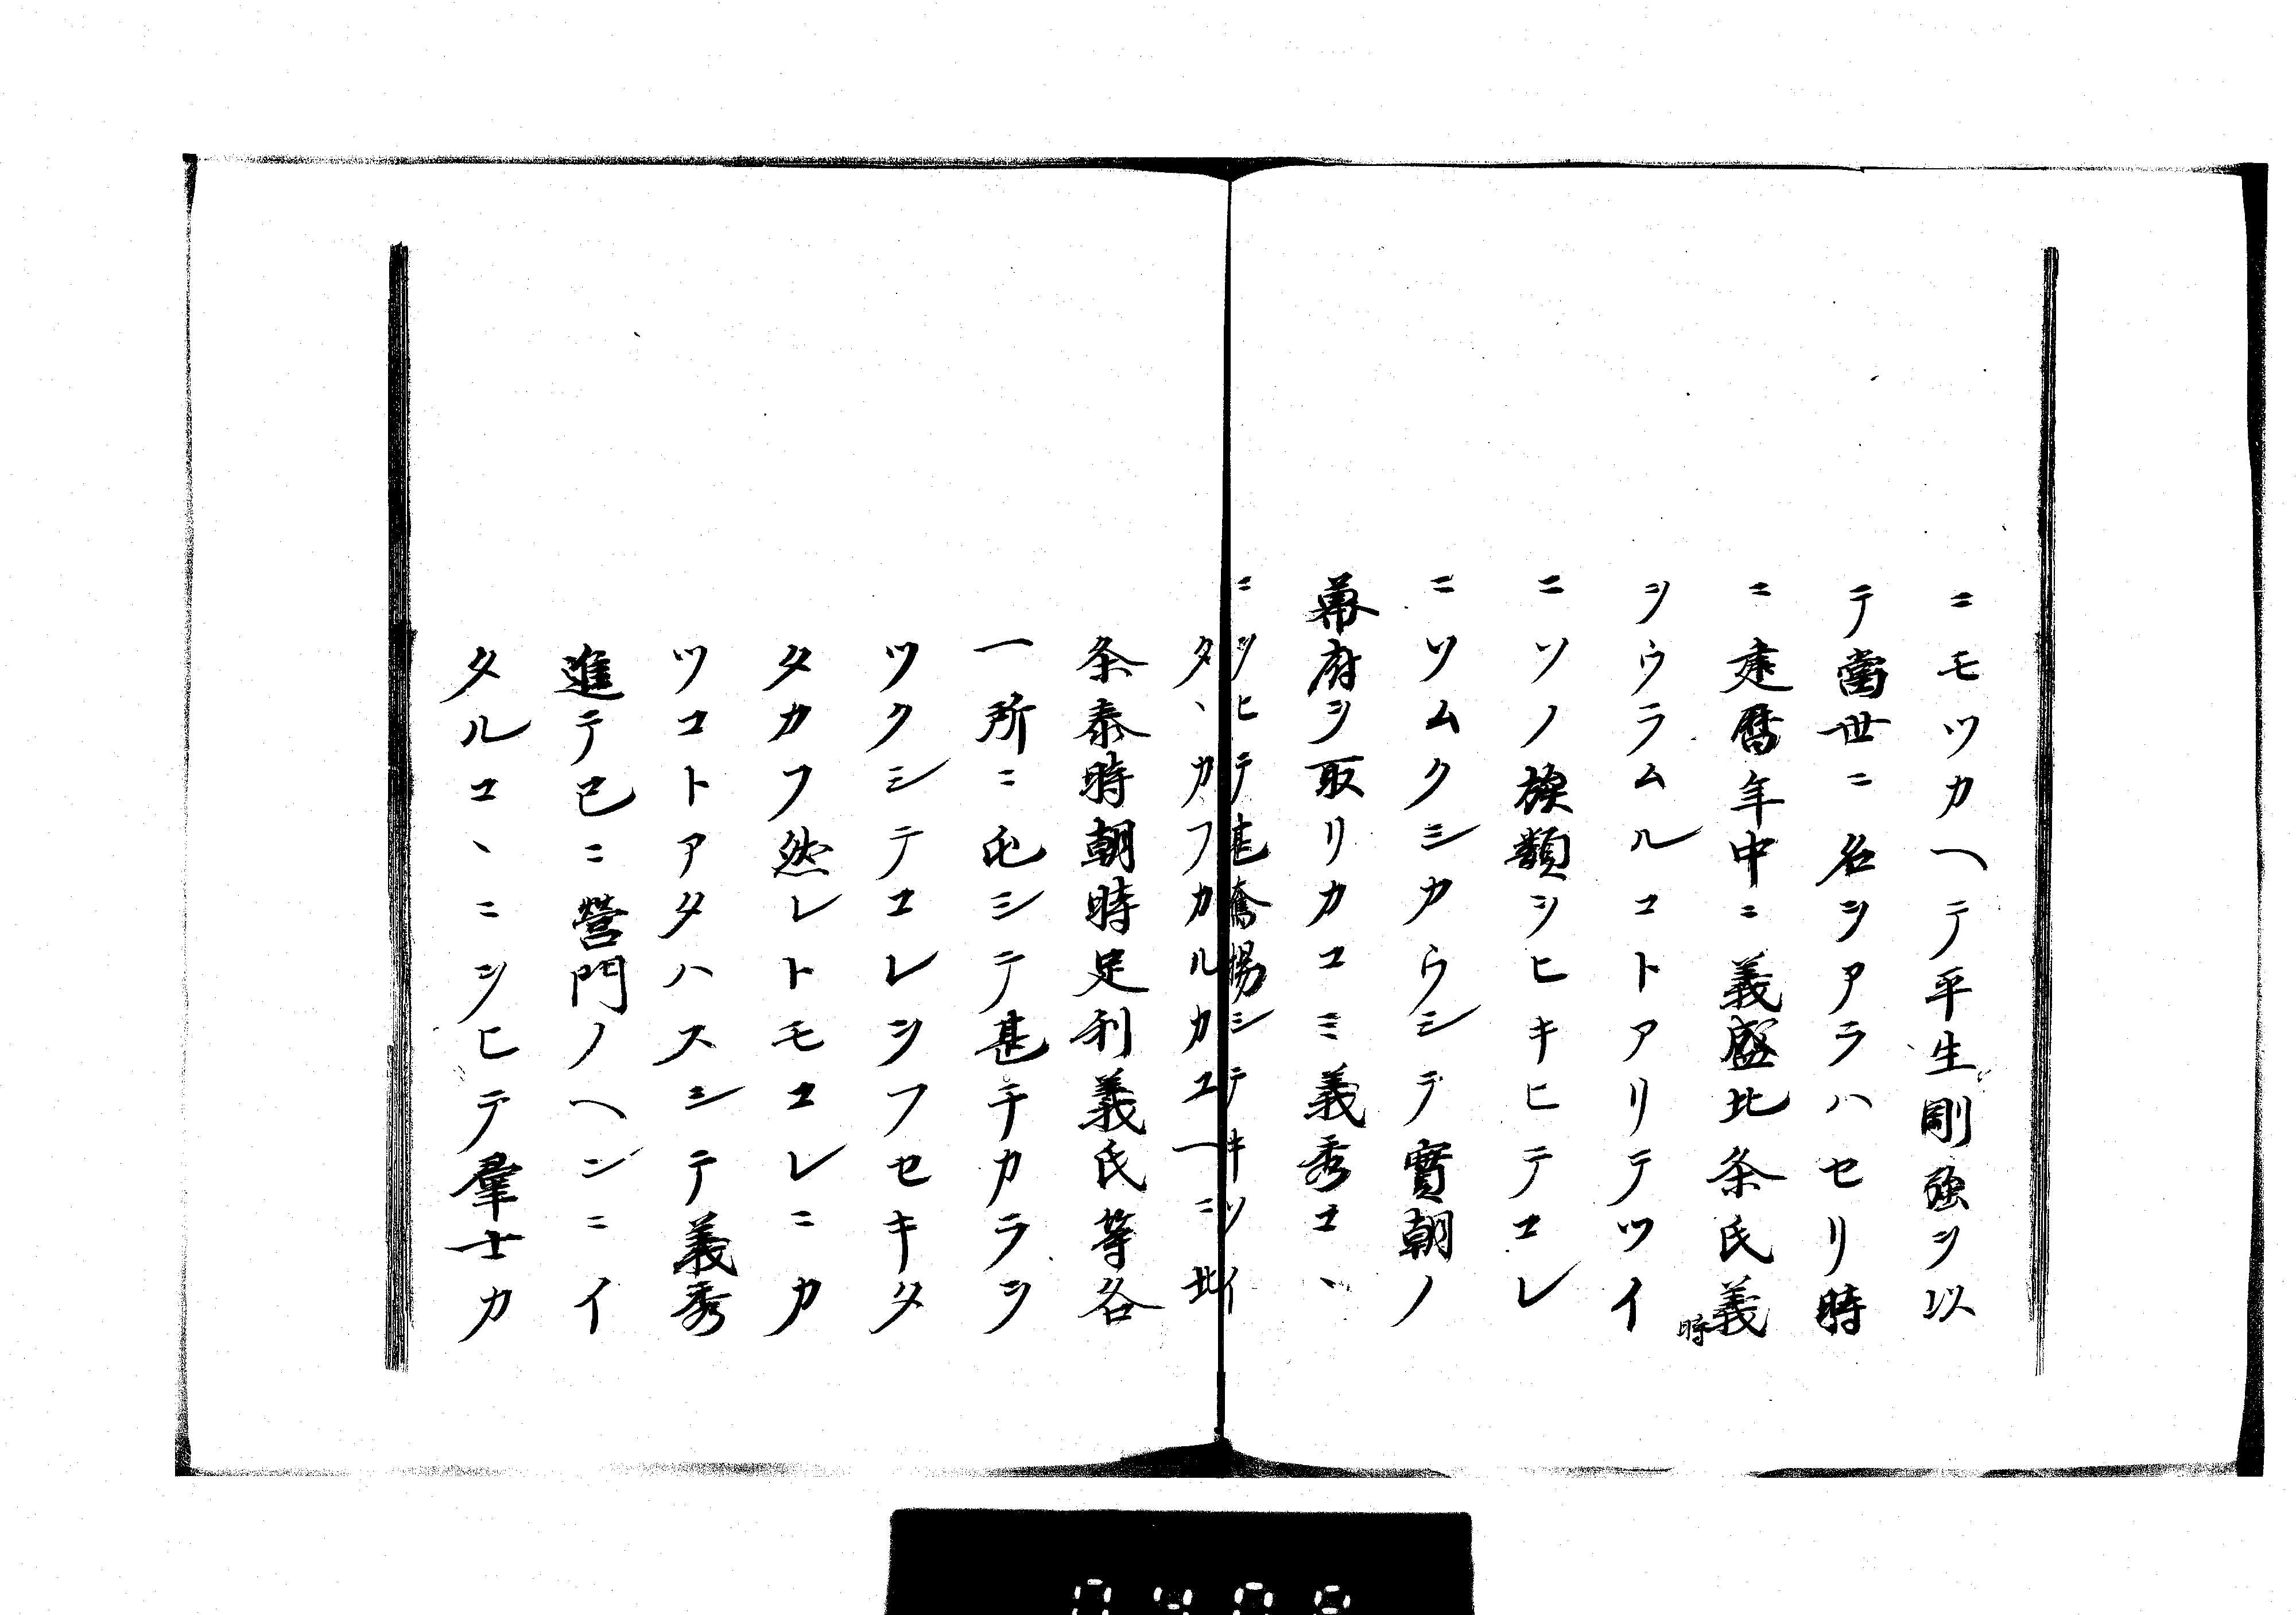 ニモツカヘテ平生剛強ヲ以
テ當世ニ名ヲアラハセリ時
ニ建暦年中ニ義盛北条氏義時
ヲウラムルコトアリテツイ
ニソノ族類ヲヒキヒテコレ
ニソムクシカウシテ實朝ノ
幕府ヲ取リカコミ義秀コヽ
ニヲヒテ甚奮揚シテキツイ
タヽカフカルカユヘニ北
条泰時朝時足利義氏等各
一所ニ屯シテ甚チカラヲ
ツクシテコレヲフセキタ
タカフ然レトモコレニカ
ツコトアタハスシテ義秀
進テ已ニ營門ノヘンニイ
タルコヽニヲヒテ羣士カ